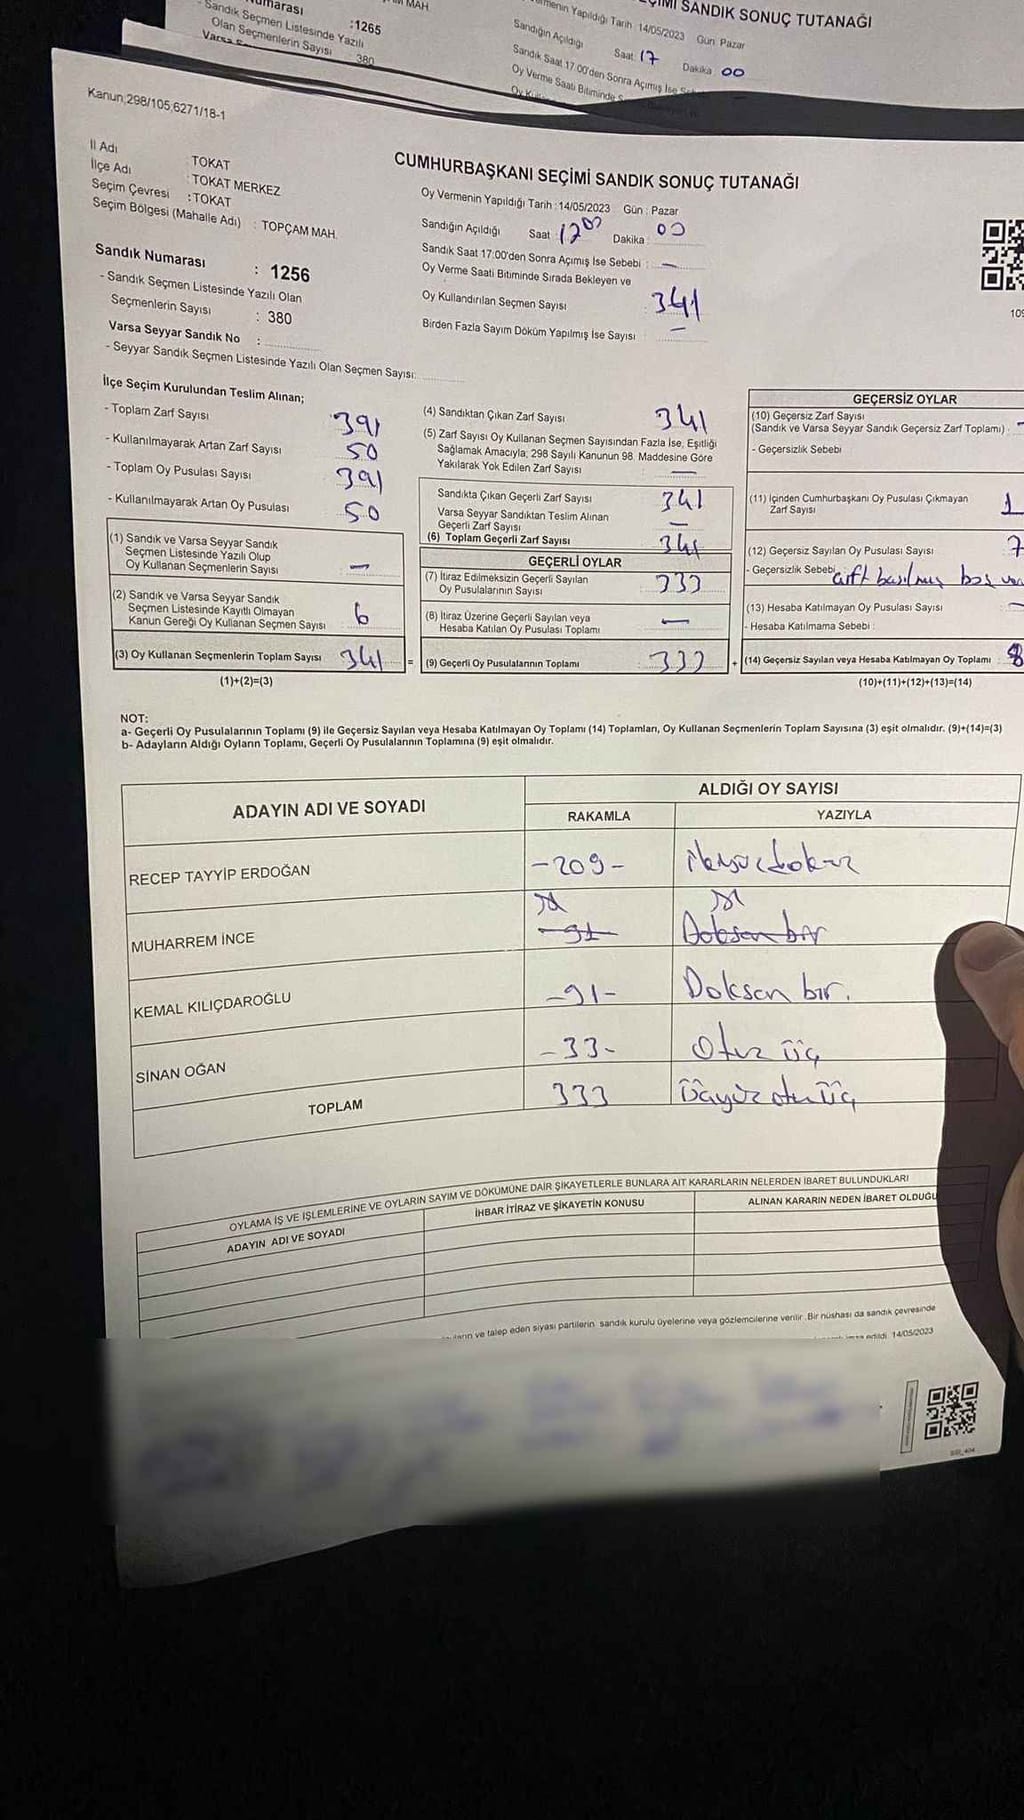 MAH.
Sandık Seçmen Listesinde Yazılı
Olan Seçmenlerin Sayısı
:1265
380
SANDIK SONUÇ TUTANAĞI
Yapıldığı Tarih 14/05/2023 Gün Pazar
Sandığın Açıldığı Saat 17 Dakika 00
Sandık Saat 17:00'den Sonra Açmış İse
Oy Verme Saati Bitiminde
Kanun;298/105,6271/18-1
İl Adı : TOKAT
İlçe Adı : TOKAT MERKEZ
Seçim Çevresi :TOKAT
Seçim Bölgesi (Mahalle Adı) : TOPÇAM MAH.
Sandık Numarası : 1256
- Sandık Seçmen Listesinde Yazılı Olan
Seçmenlerin Sayısı : 380
Varsa Seyyar Sandık No :
- Seyyar Sandık Seçmen Listesinde Yazılı Olan Seçmen Sayısı:
CUMHURBAŞKANI SEÇİMİ SANDIK SONUÇ TUTANAĞI
Oy Vermenin Yapıldığı Tarih : 14/05/2023 Gün : Pazar
Sandığın Açıldığı Saat : Dakika : 00
Sandık Saat 17:00'den Sonra Açmış İse Sebebi : —
Oy Verme Saati Bitiminde Sırada Bekleyen ve
Oy Kullandırılan Seçmen Sayısı 341
Birden Fazla Sayım Döküm Yapılmış İse Sayısı —
İlçe Seçim Kurulundan Teslim Alınan;
- Toplam Zarf Sayısı 391
- Kullanılmayarak Artan Zarf Sayısı 50
- Toplam Oy Pusulası Sayısı 391
- Kullanılmayarak Artan Oy Pusulası 50
(1) Sandık ve Varsa Seyyar Sandık
Seçmen Listesinde Yazılı Olup
Oy Kullanan Seçmenlerin Sayısı —
(2) Sandık ve Varsa Seyyar Sandık
Seçmen Listesinde Kayıtlı Olmayan
Kanun Gereği Oy Kullanan Seçmen Sayısı 6
(3) Oy Kullanan Seçmenlerin Toplam Sayısı 341 =
(1)+(2)=(3)
(4) Sandıktan Çıkan Zarf Sayısı 341
(5) Zarf Sayısı Oy Kullanan Seçmen Sayısından Fazla İse, Eşitliği
Sağlamak Amacıyla; 298 Sayılı Kanunun 98. Maddesine Göre
Yakılarak Yok Edilen Zarf Sayısı —
Sandıkta Çıkan Geçerli Zarf Sayısı 341
Varsa Seyyar Sandıktan Teslim Alınan
Geçerli Zarf Sayısı —
(6) Toplam Geçerli Zarf Sayısı 341
GEÇERLİ OYLAR
(7) İtiraz Edilmeksizin Geçerli Sayılan
Oy Pusulalarının Sayısı 333
(8) İtiraz Üzerine Geçerli Sayılan veya
Hesaba Katılan Oy Pusulası Toplamı —
(9) Geçerli Oy Pusulalarının Toplamı 333 +
GEÇERSİZ OYLAR
(10) Geçersiz Zarf Sayısı
(Sandık ve Varsa Seyyar Sandık Geçersiz Zarf Toplamı) :
- Geçersizlik Sebebi
(11) İçinden Cumhurbaşkanı Oy Pusulası Çıkmayan
Zarf Sayısı 1
(12) Geçersiz Sayılan Oy Pusulası Sayısı 7
- Geçersizlik Sebebi çift basılmış boş
(13) Hesaba Katılmayan Oy Pusulası Sayısı —
- Hesaba Katılmama Sebebi :
(14) Geçersiz Sayılan veya Hesaba Katılmayan Oy Toplamı : 8
(10)+(11)+(12)+(13)=(14)
NOT:
a- Geçerli Oy Pusulalarının Toplamı (9) ile Geçersiz Sayılan veya Hesaba Katılmayan Oy Toplamı (14) Toplamları, Oy Kullanan Seçmenlerin Toplam Sayısına (3) eşit olmalıdır. (9)+(14)=(3)
b- Adayların Aldığı Oyların Toplamı, Geçerli Oy Pusulalarının Toplamına (9) eşit olmalıdır.
ADAYIN ADI VE SOYADI
ALDIĞI OY SAYISI
RAKAMLA YAZIYLA
RECEP TAYYİP ERDOĞAN -209- ikiyüzdokuz
MUHARREM İNCE -91- Doksan bir
KEMAL KILIÇDAROĞLU -91- Doksan bir.
SİNAN OĞAN -33- Otuz üç
TOPLAM 333 Üçyüz otuz üç
OYLAMA İŞ VE İŞLEMLERİNE VE OYLARIN SAYIM VE DÖKÜMÜNE DAİR ŞİKAYETLERLE BUNLARA AİT KARARLARIN NELERDEN İBARET BULUNDUKLARI
ADAYIN ADI VE SOYADI
İHBAR İTİRAZ VE ŞİKAYETİN KONUSU
ALINAN KARARIN NEDEN İBARET OLDUĞU
ve talep eden siyasi partilerin sandık kurulu üyelerine veya gözlemcilerine verilir. Bir nüshası da sandık çevresinde
edildi. 14/05/2023